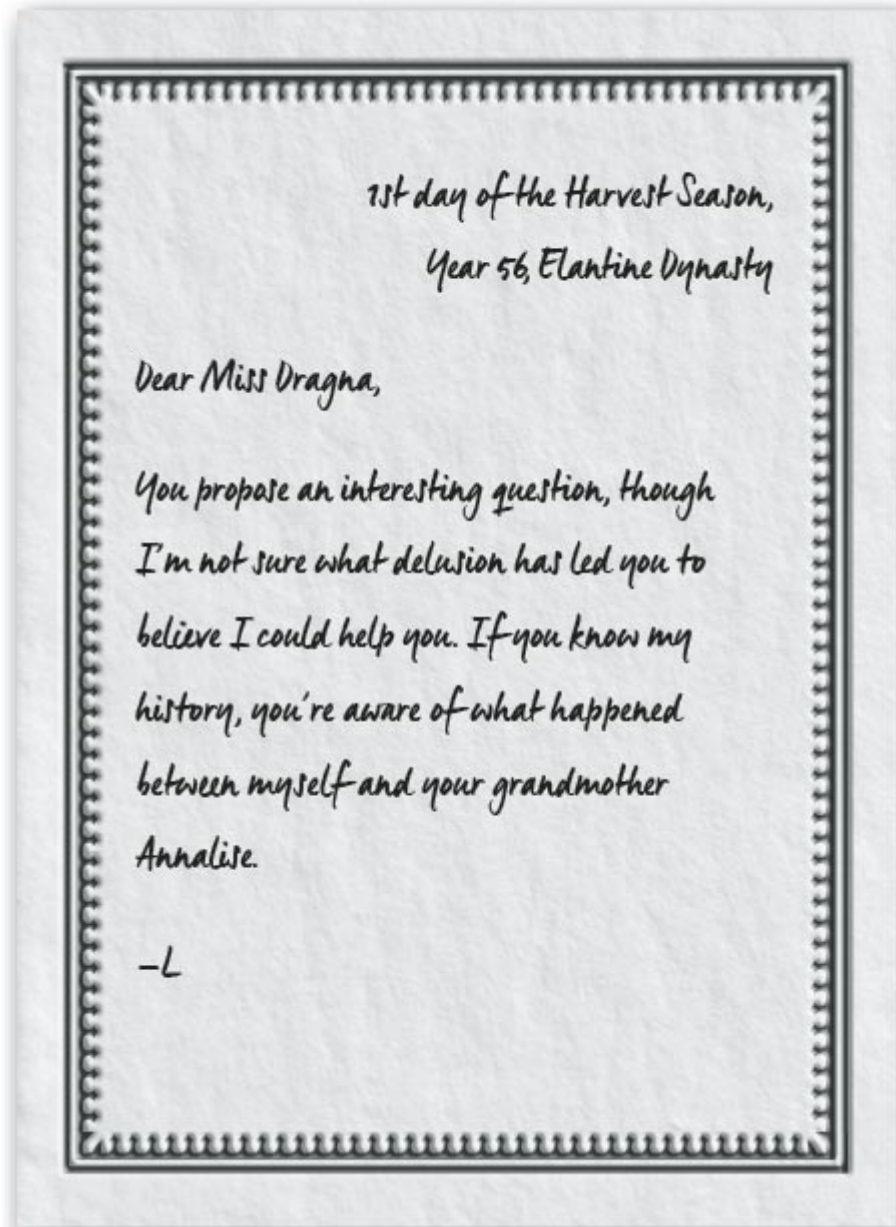 1st day of the Harvest Season,
Year 56, Elantine Dynasty
Dear Miss Dragna,
You propose an interesting question, though
I'm not sure what delusion has led you to
believe I could help you. If you know my
history, you're aware of what happened
between myself and your grandmother
Annalise.
–L